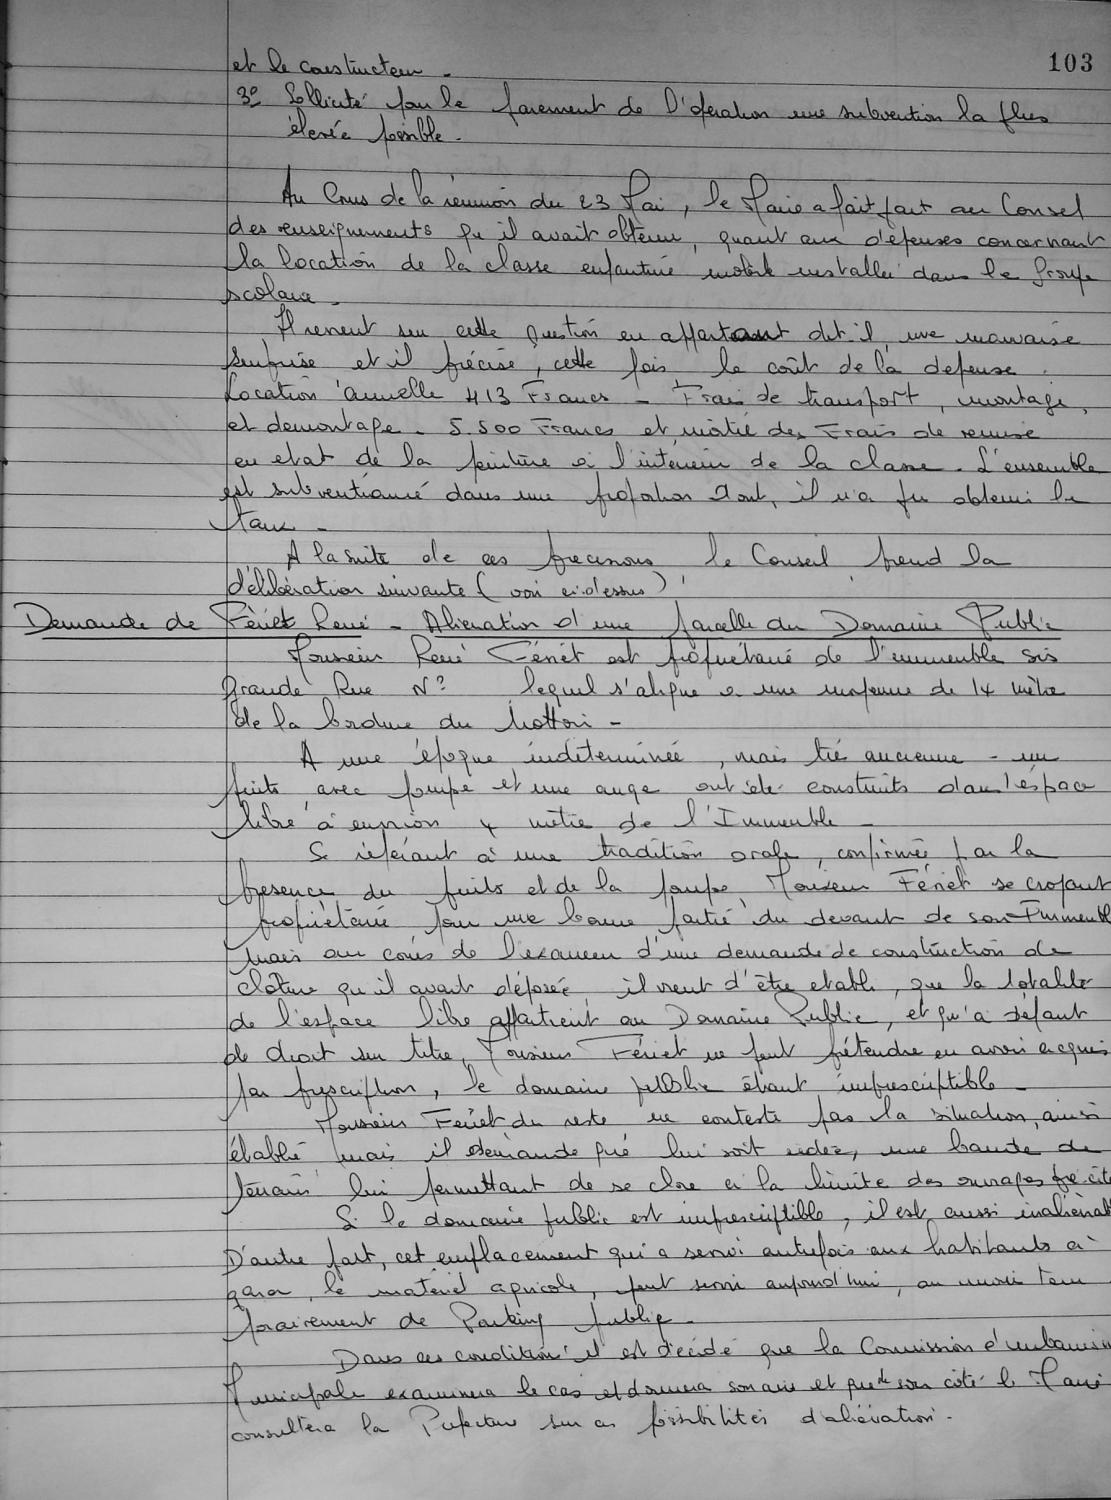 103
et le constructeur -
3º Sollicité pour le paiement de l'opération une subvention la plus
élevée possible -
Au Cours de la réunion du 23 Mai, le Maire a fait part au Conseil
des renseignements qu'il avait obtenu, quant aux dépenses concernant
la location de la classe enfantine mobile installée dans le Groupe
scolaire -
Il revient sur cette question en apportant dit il, une mauvaise
surprise et il précise, cette fois le coût de la dépense.
Location annuelle 413 Francs - Frais de transport, montage,
et demontage - 5.500 Francs et moitié des Frais de remise
en etat de la peinture à l'interieur de la classe. L'ensemble
est subventionné dans une proportion dont, il n'a pu obtenir le
taux -
A la suite de ces precisions le Conseil prend la
délibération suivante (voir ci-dessus)
Demande de Fériet René - Alienation d'une parcelle du Domaine Public
Monsieur René Fériet est propriétaire de l'immeuble sis
grande Rue Nº lequel s'aligne a une largeur de 14 mètre
de la bordure du trottoir -
A une époque indéterminée, mais très ancienne - un
puits avec pompe et une auge ont été construits dans l'espace
libre à environ 4 mètre de l'Immeuble -
Se référant à une tradition orale, confirmée par la
présence du puits et de la pompe Monsieur Fériet se croyant
propriétaire pour une bonne partie du devant de son Immeuble
mais au cours de l'examen d'une demande de construction de
clôture qu'il avait déposée il vient d'être etabli, que la totalité
de l'espace libre appartient au Domaine Public, et qu'à défaut
de droit sur titre, Monsieur Fériet ne peut prétendre en avoir acquis
par prescription, le domaine public étant imprescriptible -
Monsieur Fériet du reste ne conteste pas la situation, ainsi
établie mais il demande que lui soit cédée, une bande de
terrain lui permettant de se clore à la limite des ouvrages pré-cités
Si le domaine public est imprescriptible, il est aussi inaliénable
D'autre part, cet emplacement qui a servi autrefois aux habitants à
garer, le materiel agricole, peut servir aujourd'hui, au moins tem
porairement de Parking public -
Dans ces condition il est décidé que la Commission d'urbanisme
Municipale examinera le cas et donnera son avis et que de son côté le Maire
consultera la Préfecture sur les possibilités d'aliénation -